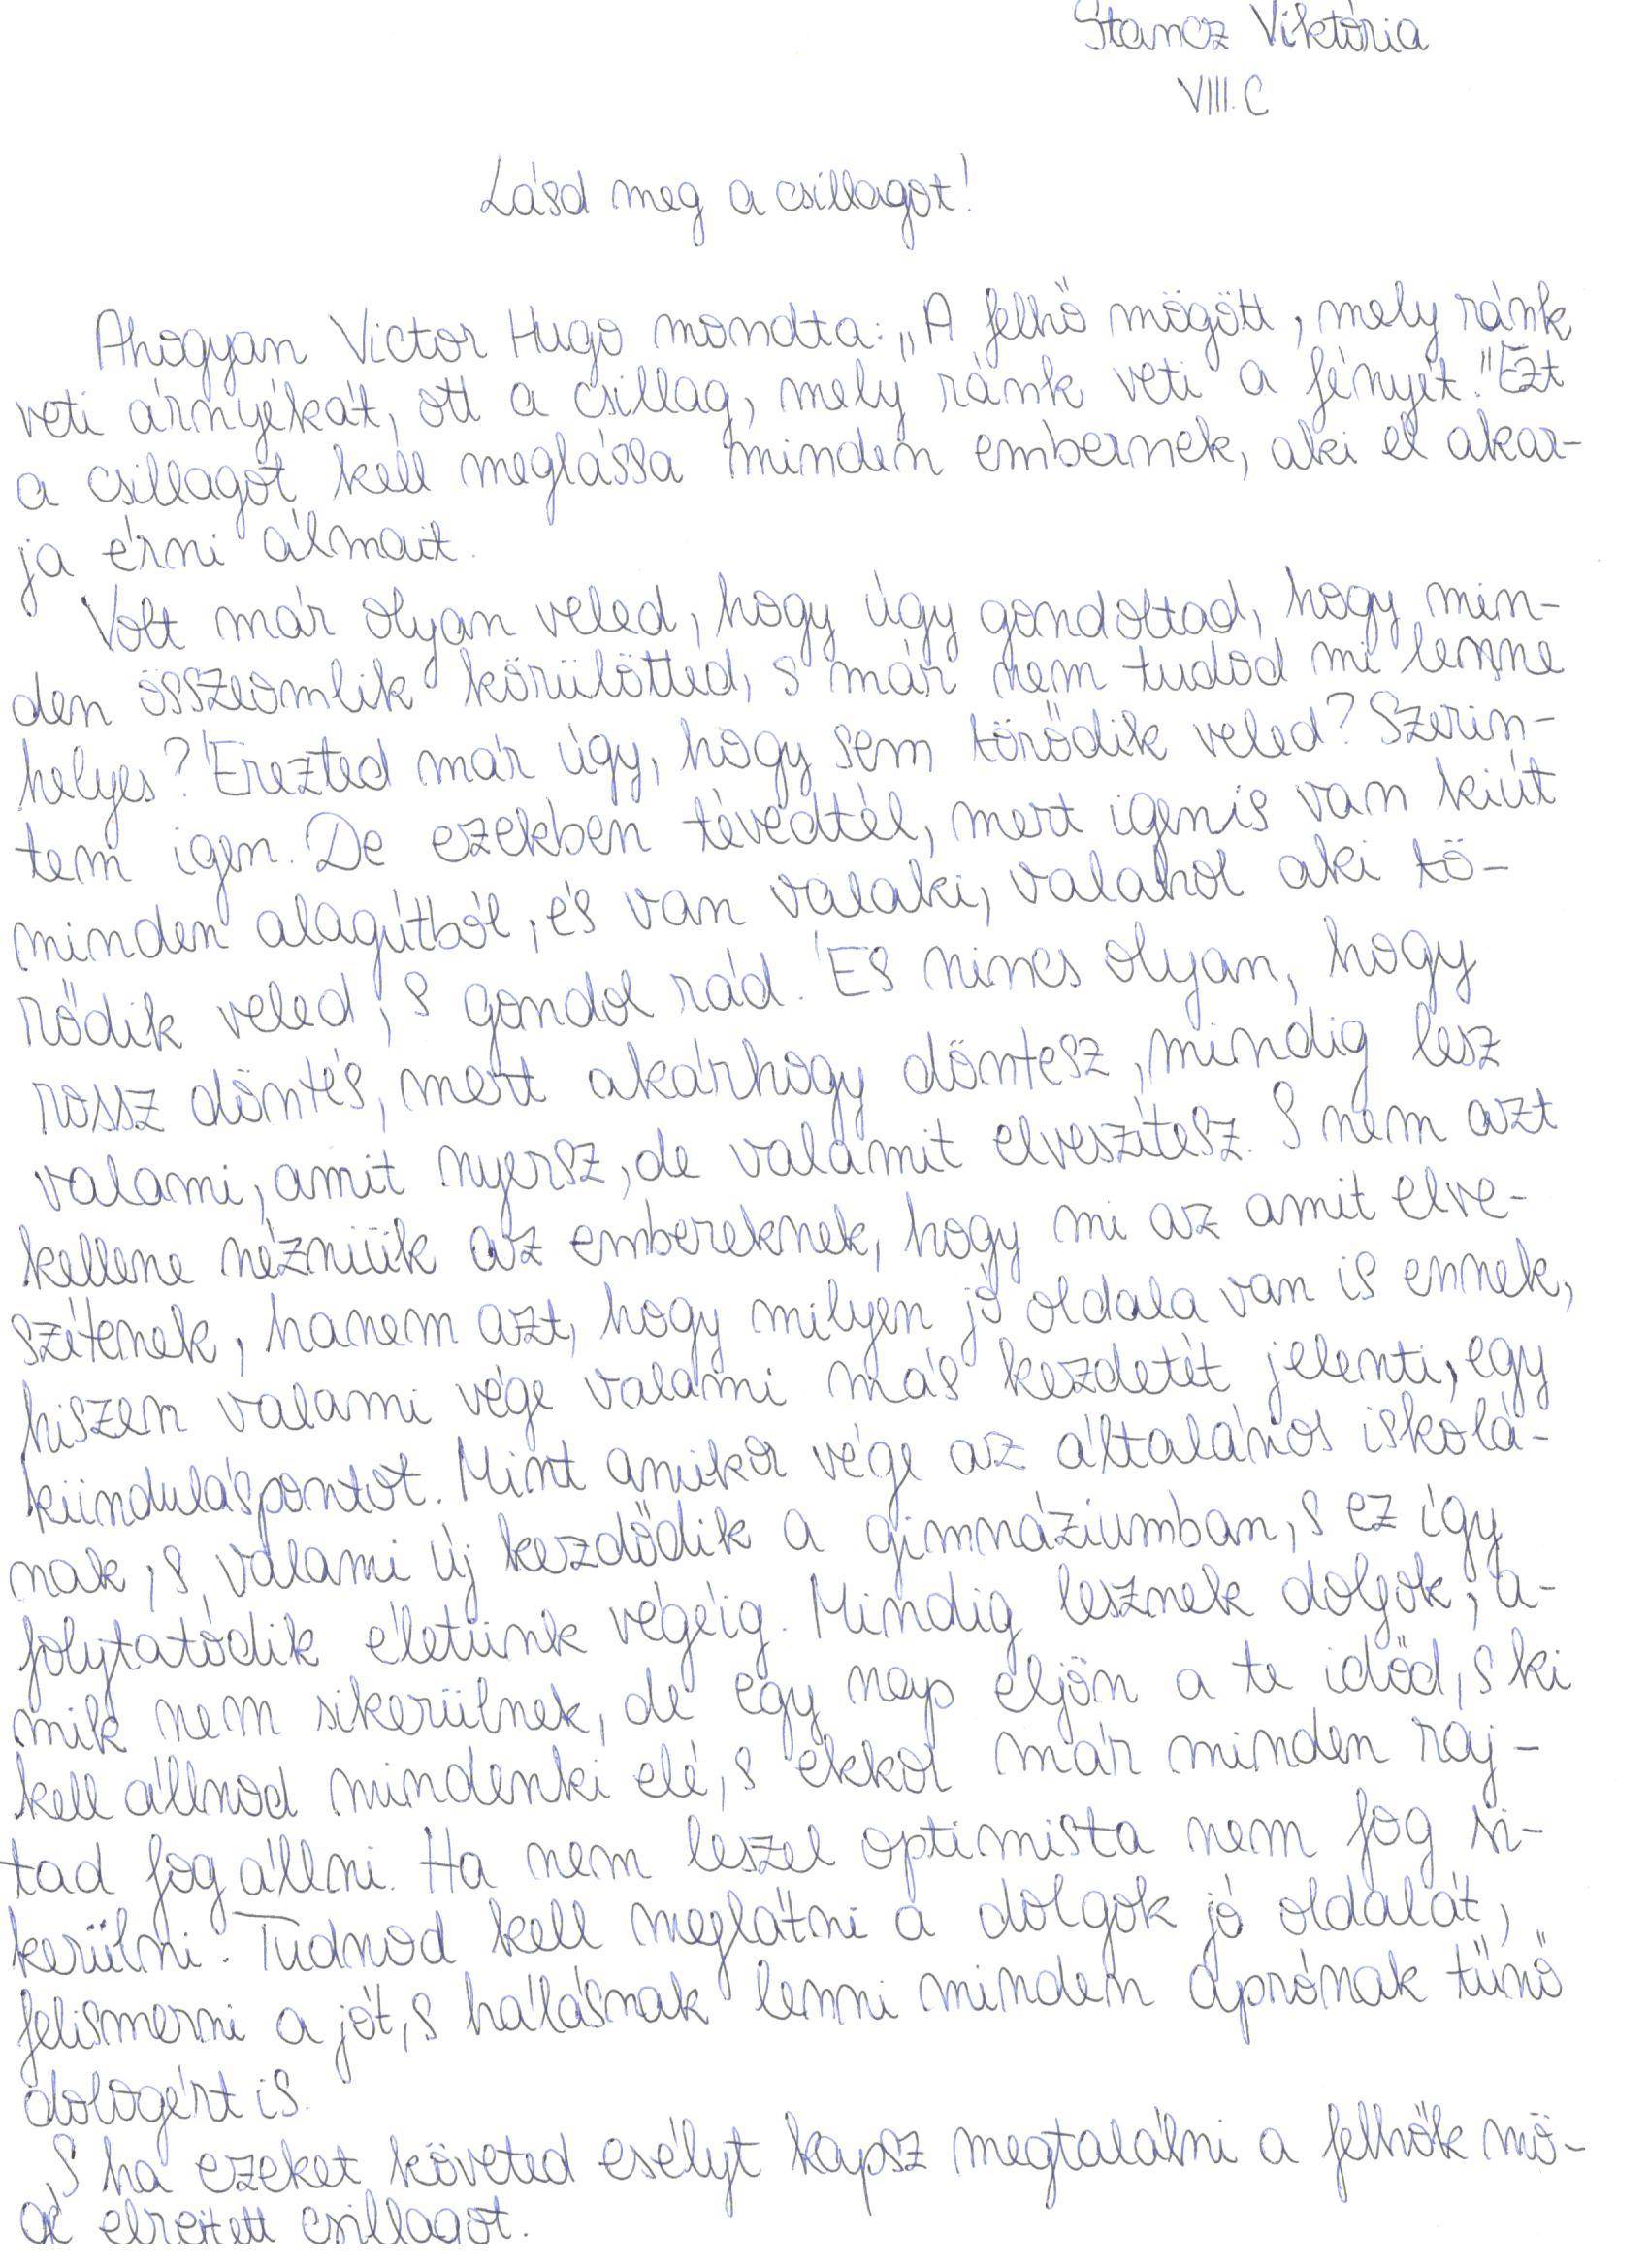 Stancz Viktória
VIII. C
Lásd meg a csillagot!
Ahogyan Victor Hugo mondta: „A felhő mögött, mely ránk
veti árnyékát, ott a csillag, mely ránk veti a fényét." Ezt
a csillagot kell meglássa minden embernek, aki el akar-
ja érni álmait.
Volt már olyan veled, hogy úgy gondoltad, hogy min-
den összeomlik körülötted, s már nem tudod mi lenne
helyes? Érezted már úgy, hogy sem törődik veled? Szerin-
tem igen. De ezekben tévedtél, mert igenis van kiút
minden alagútból, és van valaki, valahol aki tö-
rődik veled, s gondol rád. És nincs olyan, hogy
rossz döntés, mert akárhogy döntesz, mindig lesz
valami, amit nyersz, de valamit elveszítesz. S nem azt
kellene nézniük az embereknek, hogy mi az amit elve-
szítenek, hanem azt, hogy milyen jó oldala van is ennek,
hiszen valami vége valami más kezdetét jelenti, egy
kiinduláspontot. Mint amikor vége az általános iskolá-
nak, s valami új kezdődik a gimnáziumban, s ez így
folytatódik életünk végéig. Mindig lesznek dolgok, a-
mik nem sikerülnek, de egy nap eljön a te időd, s ki
kell állnod mindenki elé, s ekkor már minden raj-
tad fog állni. Ha nem leszel optimista nem fog si-
kerülni. Tudnod kell meglátni a dolgok jó oldalát,
felismerni a jót, s hálásnak lenni minden aprónak tűnő
dologért is.
S ha ezeket követed esélyt kapsz megtalálni a felhők mö-
gé elrejtett csillagot.